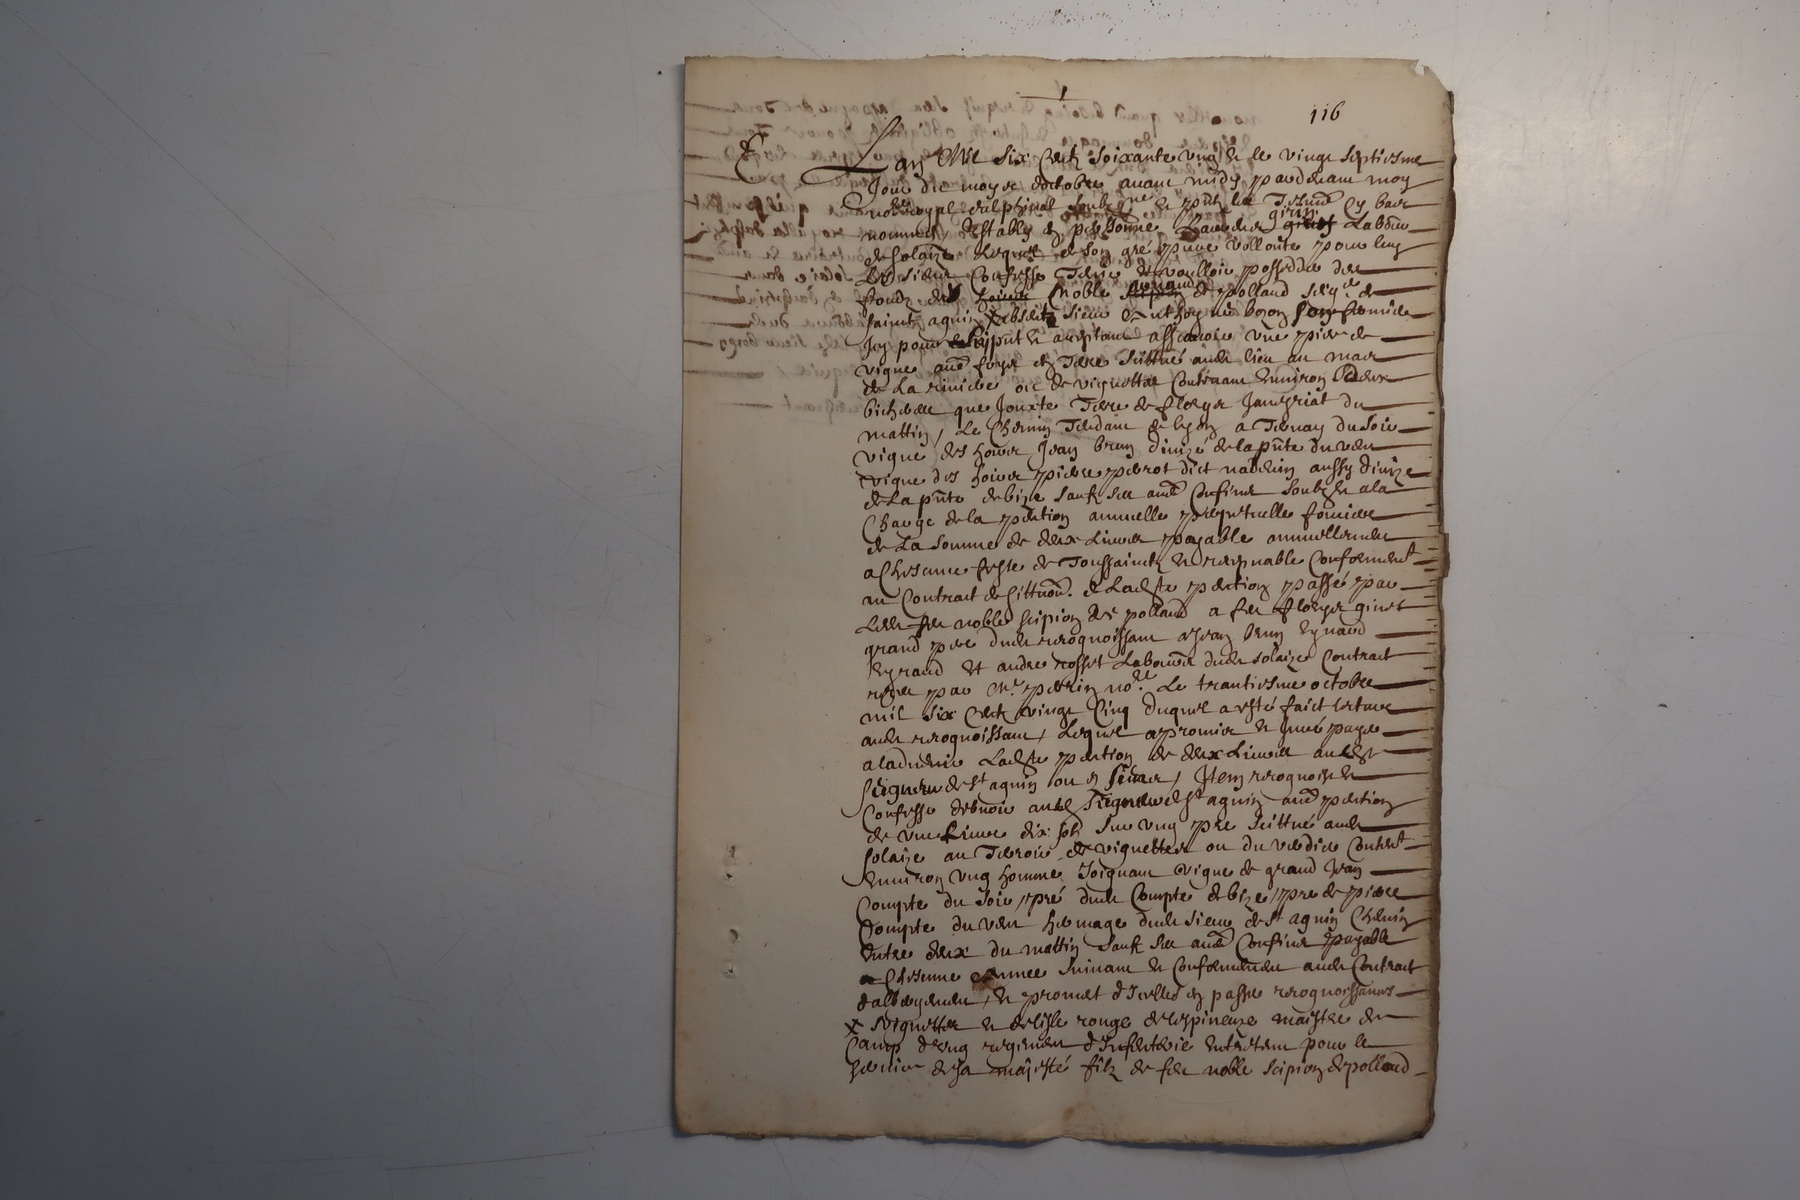 1
116
L'an Mil six centz soixante ung & le vingt septiesme
Jour du moys d'octobre avant midy pardevant moy
no.re royal delphinal soubz.ne & p̃nts les tesmoins cy bas
nommes, estably en personne girin
de solaize lequel de son gré pure vollonté pour luy
les siens confesse tenir & voulloir posseder des
fondz de noble & polland seig.r de
saint agnin X absent sieur Anthoyne
Icy pour luy p̃nt & acceptant asscavoir une piece de
vigne en terre scittué aud lieu au mas
de La riviere ou de vignettes contenant environ deux
bicherées que Jouxte terre de fleury du
mattin, Le Chemin tendant de lyon a Ternay du soir
vigne des hoirs Jean brun divizé de la p̃nte du vent
vigne des hoirs pierre perrot dict aussy divize
de La p̃nte de bize sauf ses aud confins soubz & a la
Charge de la pention annuelle perpetuelle fonciere
de La somme de deux Livres payable annuellement
a Chescune feste de Toussainctz & conforment
au Contract de . de Ladte pention passé par
Led feu noble scipion de polland a feu fleury girin
grand pere dud recognoissant Jean brun
Eyraud et andre rosset Laboureur dud solaize Contract
receu par M.e perrin no.re Le trantiesme octobre
mil six centz vingt Cinq duquel a esté faict lecture
aud recognoissant, Lequel a promis & Juré payer
a ladvenir Ladte pention de deux Livres aud
Seigneur de st agnin ou es siens, Item recognoist &
Confesse debvoir aud Seigneur de st agnin pention
de une Livre dix solz sur ung pré scittué aud
solaize au Terroir de vignettes ou du content
Environ ung homme Joignant vigne de grand Jean
Compte du soir, pré dud Compte de bize, pré de pierre
Compte du vent hermage dud sieur de st agnin Chemin
entre deux du mattin sauf ses aud Confins payable
a Chescune année suivant & Conformement aud Contract
d'albergement, & promet d'Icelles en passer recognoissances
X vignettes & de lisle rouge de lespineuze maistre de
Camp d'ung regiment d'Infanterie entretenu pour le
service de sa majesté filz de feu noble scipion de polland